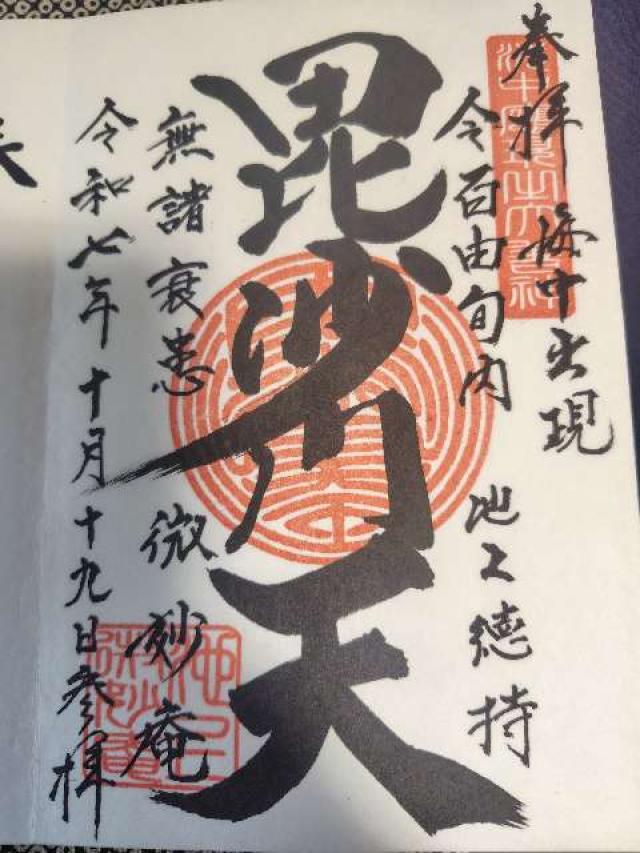 奉拝 海中出現
令百由旬内 池上徳持
毘沙門天
無諸衰患 微妙庵
令和七年十月十九日参拝
池上
微妙庵